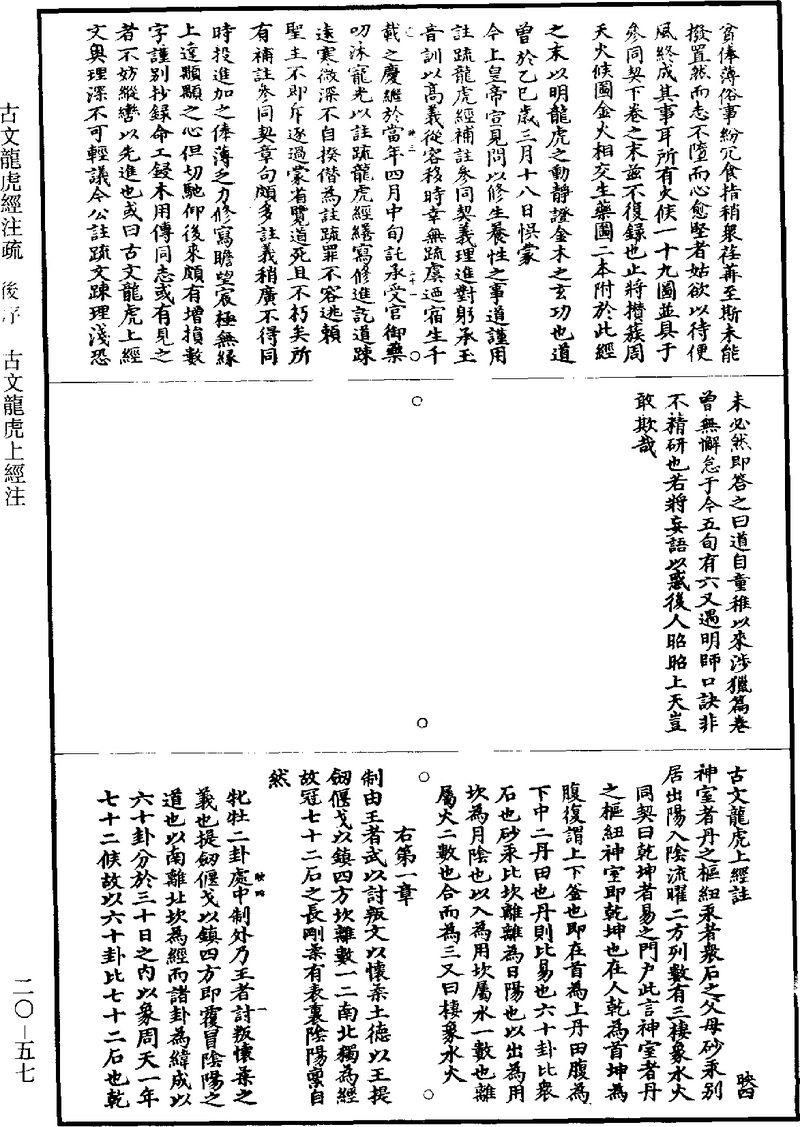 貧俸薄俗事紛冗食指稍衆荏苒至斯未能
撥置然而志不墮而心愈堅者姑欲以待便
風終成其事耳所有火候一十九圖並具于
參同契下卷之末茲不復録也止將攢蔟周
天火候圖金火相交生藥圖二本附於此經
之末以明龍虎之動靜證金木之玄功也道
曾於乙巳歲三月十八日悞蒙
今上皇帝宣見問以修生養性之事道謹用
註疏龍虎經補註參同契義理進對躬承玉
音訓以高義從容移時幸無疏虞迺宿生千
載之慶繼於當年四月中旬託承受官御藥
叨沐寵光以註疏龍虎經繕寫修進訖道踈
遠寒微深不自揆僭為註疏罪不容逃賴
聖主不即斥逐過蒙省覽道死且不朽矣所
有補註參同契章句頗多註義稍廣不得同
時投進加之俸薄乏力修寫瞻望宸極無緣
上達顒顒之心但切馳仰後來頗有增損數
字謹別抄録命工鋟木用傳同志或有見之
者不妨縱轡以先進也或曰古文龍虎上經
文奧理深不可輕議今公註疏文踈理淺恐
未必然即答之曰道自童稚以來涉獵篇卷
曾無懈怠于今五旬有六又遇明師口訣非
不精研也若將妄語以惑後人昭昭上天豈
敢欺哉
古文龍虎上經註
映四
神室者丹之樞紐汞者衆石之父母砂汞別
居出陽入陰流曜二方列數有三棲象水火
同契曰乾坤者易之門户此言神室者丹
之樞紐神室即乾坤也在人乾為首坤為
腹復謂上下釜也即在首為上丹田腹為
下中二丹田也丹則比易也六十卦比衆
石也砂汞比坎離離為日陽也以出為用
坎為月陰也以入為用坎屬水一數也離
屬火二數也合而為三又曰棲象水火
右第一章
制由王者武以討叛文以懷柔土德以王提
劒偃戈以鎮四方坎離數一二南北獨為經
故冠七十二石之長剛柔有表裏陰陽禀自
然
牝牡二卦處中制外乃王者討叛懷柔之
義也提劒偃戈以鎮四方即覆冒陰陽之
道也以南離北坎為經而諸卦為緯成以
六十卦分於三十日之內以象周天一年
七十二候故以六十卦比七十二石也乾
古文龍虎經注疏　後序　古文龍虎上經注
二〇－五七